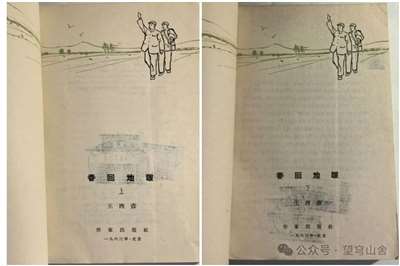 春回地暖
上
王西彦
作家出版社
一九六三年·北京
春回地暖
下
王西彦
作家出版社
一九六三年·北京
公众号 · 望穹山舍